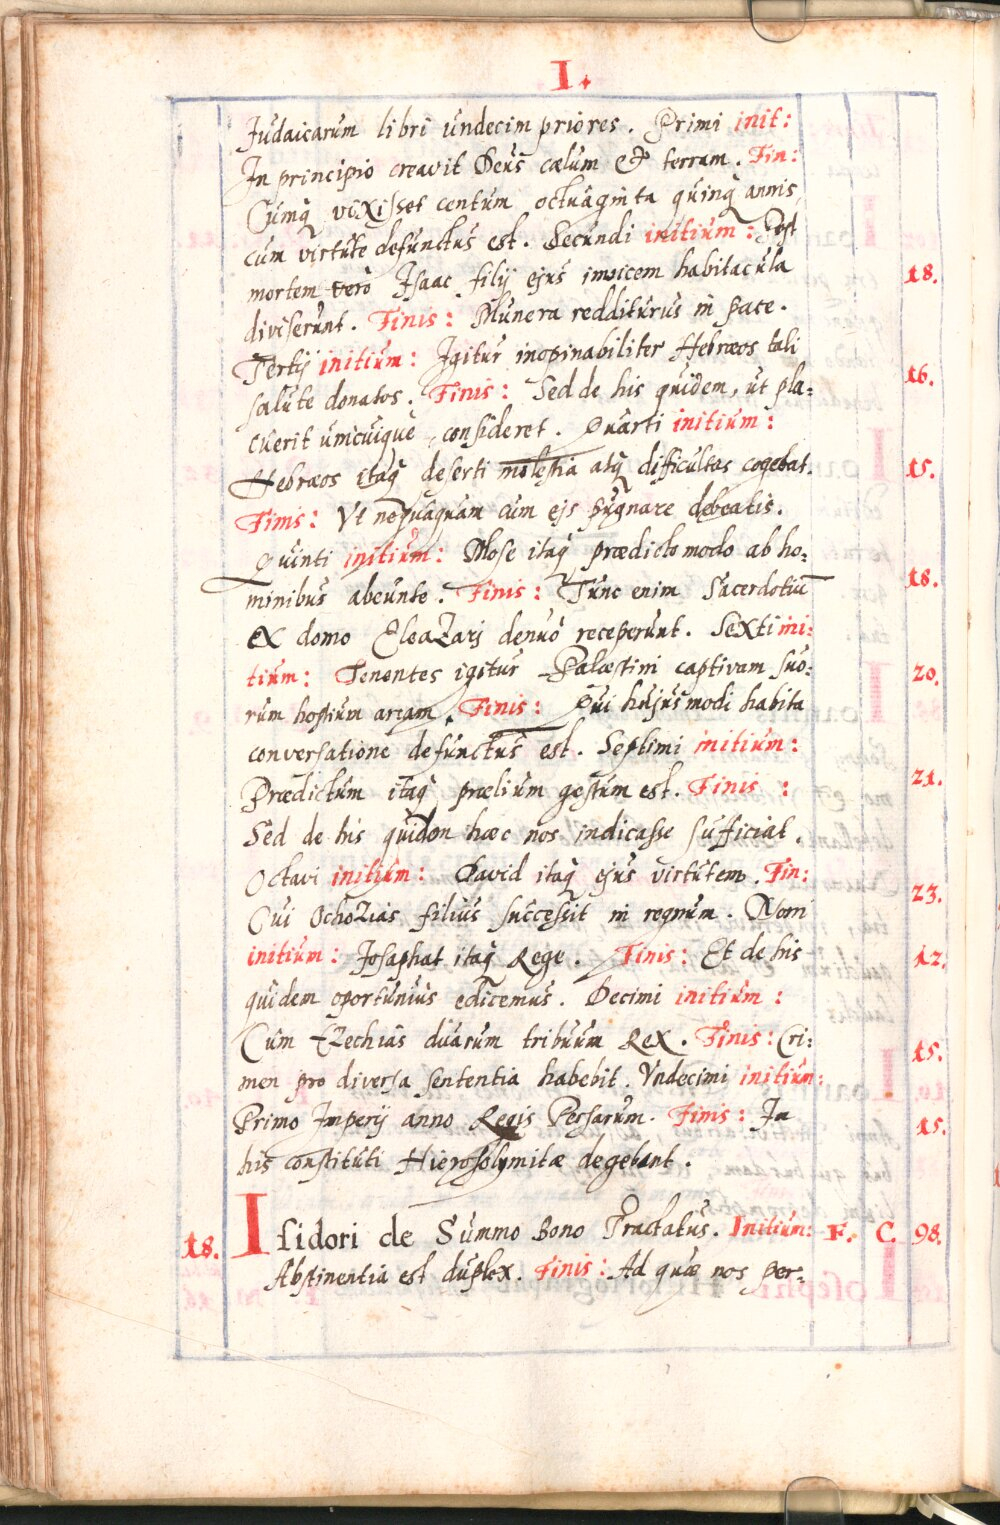 I.
Judaicarum libri undecim priores. Primi init:
In principio creavit Deus cælum & terram. Fin:
Cumq̃ vixisset centum octuaginta quinq̃ annis,
cum virtute defunctus est. Secundi initium: Post
mortem verò Isaac filij ejus invicem habitacula 18.
diviserunt. Finis: Munera redditurus in pace.
Tertij initium: Igitur inopinabiliter Hebræos tali
salute donatos. Finis: Sed de his quidem, ut pla: 16.
cuerit unicuique consideret. Quarti initium:
Hebræos itaq̃ deserti molestia atq̃ difficultas cogebat. 15.
Finis: Vt nequaquam cum ejs pugnare debeatis.
Quinti initium: Mose itaq̃ prædicto modo ab ho:
minibus abeunte. Finis: Tunc enim Sacerdotiũ 18.
ex domo Eleazarj denuò receperunt. Sexti ini:
tium: Tenentes igitur Palæstini captivam suo: 20.
rum hostium arcam. Finis: Qui hujusmodi habita
conversatione defunctus est. Septimi initium:
Prædictum itaq̃ prælium gestum est. Finis: 21.
Sed de his quidem hæc nos indicasse sufficiat.
Octavi initium: David itaq̃ ejus virtutem. Fin:
Cui Ochozias filius successit in regnum. Noni 23.
initium: Josaphat itaq̃ Rege. Finis: Et de his 12.
quidem oportunius edicemus. Decimi initium:
Cum Ezechias duarum tribuum Rex. Finis: Cri: 15.
men pro diversa sententia habebit. Vndecimi initium:
Primo Imperij anno Regis Persarum. Finis: In 15.
his constituti Hierosolymitæ degebant.
18. Isidori de Summo Bono Tractatus. Initium: F. C. 98.
Abstinentia est duplex. Finis: Ad quæ nos per: